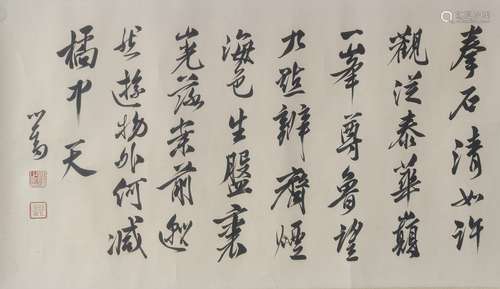 拳石清如許
觀從泰華巔
一峯尊魯望
九點辨齊煙
海色生盤裏
山光落案前邈
然遊物外何減
橘中天
心畬